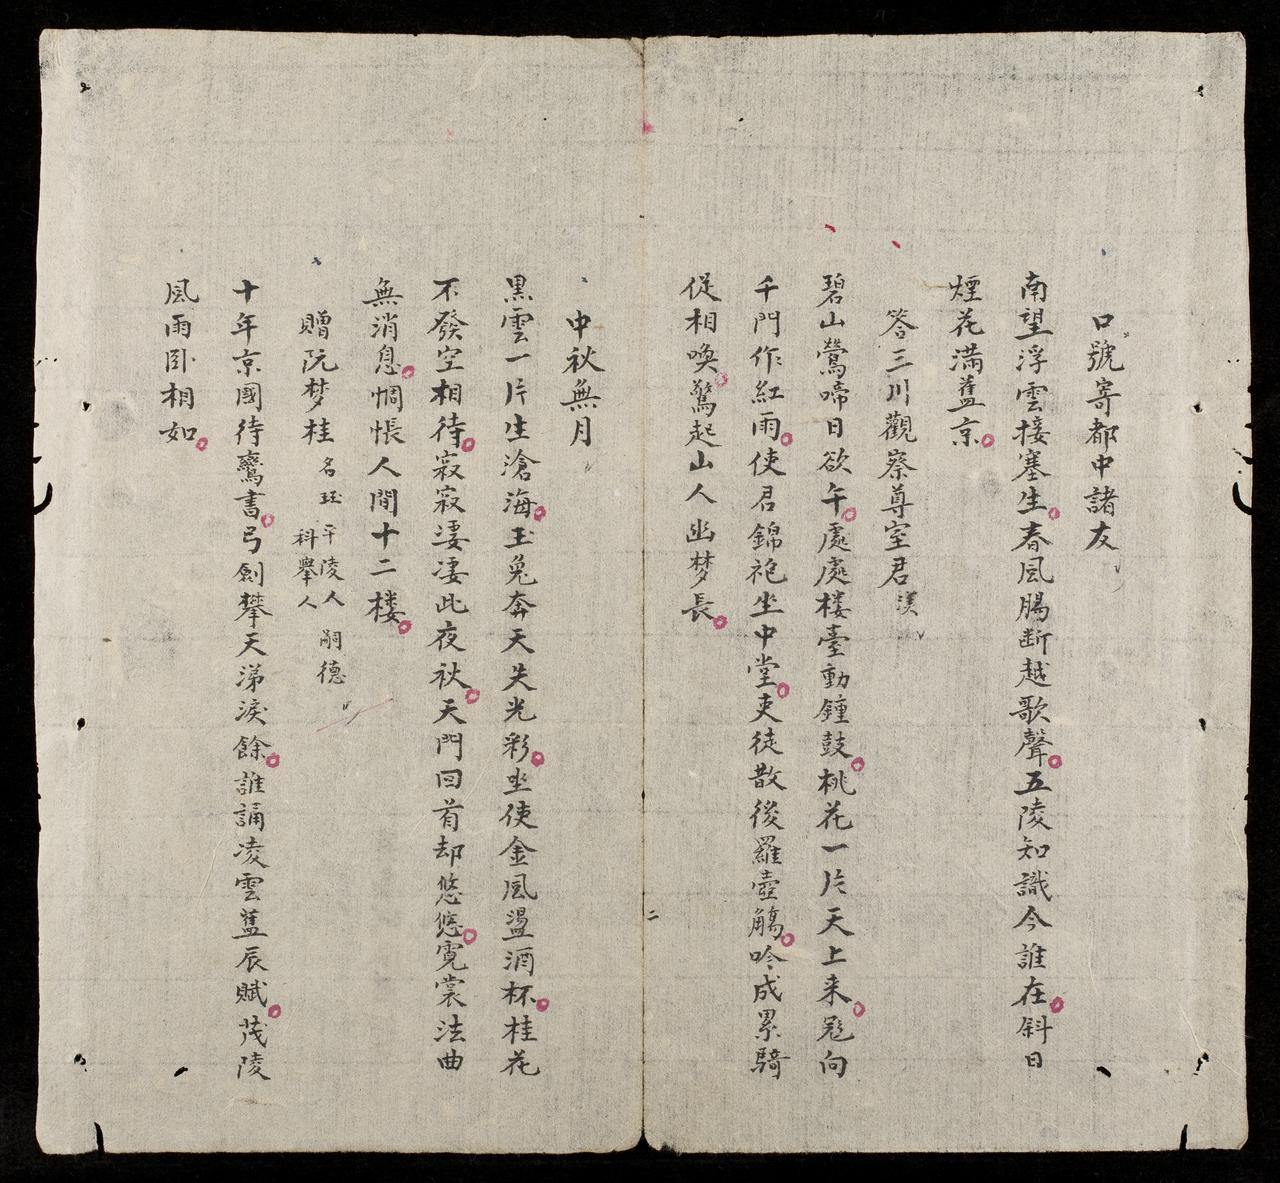 口號寄都中諸友
南望浮雲接塞生春風腸断越歌聲五陵知識今誰在斜日
煙花滿舊京
答三川觀察尊室君渼
碧山鶯啼日欲午處處楼臺動鍾鼓桃花一片天上来迯向
千門作紅雨使君錦袍坐中堂吏徒散後羅壺觴吟成累騎
從相喚驚起山人幽梦長
中秋無月
黒雲一片生滄海玉兔奔天失光彩坐使金風盪酒杯桂花
不發空相待寂寂淒淒此夜秋天門回首却悠悠霓裳法曲
無消息惆悵人間十二楼
贈阮梦桂 名珏平陵人嗣德科舉人
十年京國待鸞書弓劍攀天涕淚餘誰誦凌雲舊辰賦茂陵
風雨卧相如
二